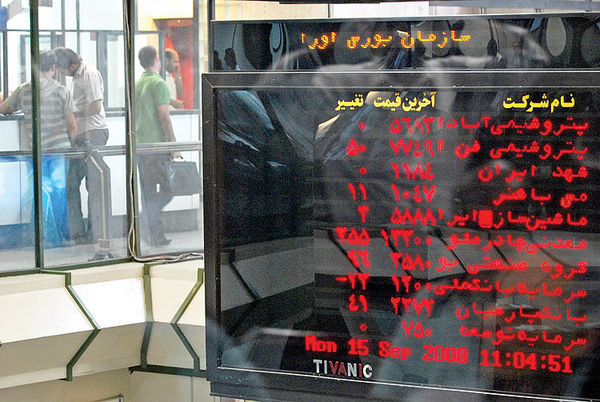 سازمان بورس اورا
نام شرکت آخرین قیمت تغییر
پتروشیمی آبادا ۵۶۸۳ ۰
پتروشیمی فن ا ۷۷۴۹ ۵۰
شهد ایران ۱۱۸۴ ۰
می باهنر ۱۰۴۷ ۱۱
ماشین ساز ایرا ۵۸۸۸ ۲
معدنی چادرملو ۱۳۲۰۰ ۲۵۵
گروه صنعتی بو ۲۵۸۰ ۴۶
سرمایه بانک ملی ۱۲۰۰ -۲۲
بانک پارسیان ۲۲۷۲ ۴۱
سرمایه توسعه ۷۵۰ ۰
Mon 15 Sep 2008 11:04:51
TIVANIC